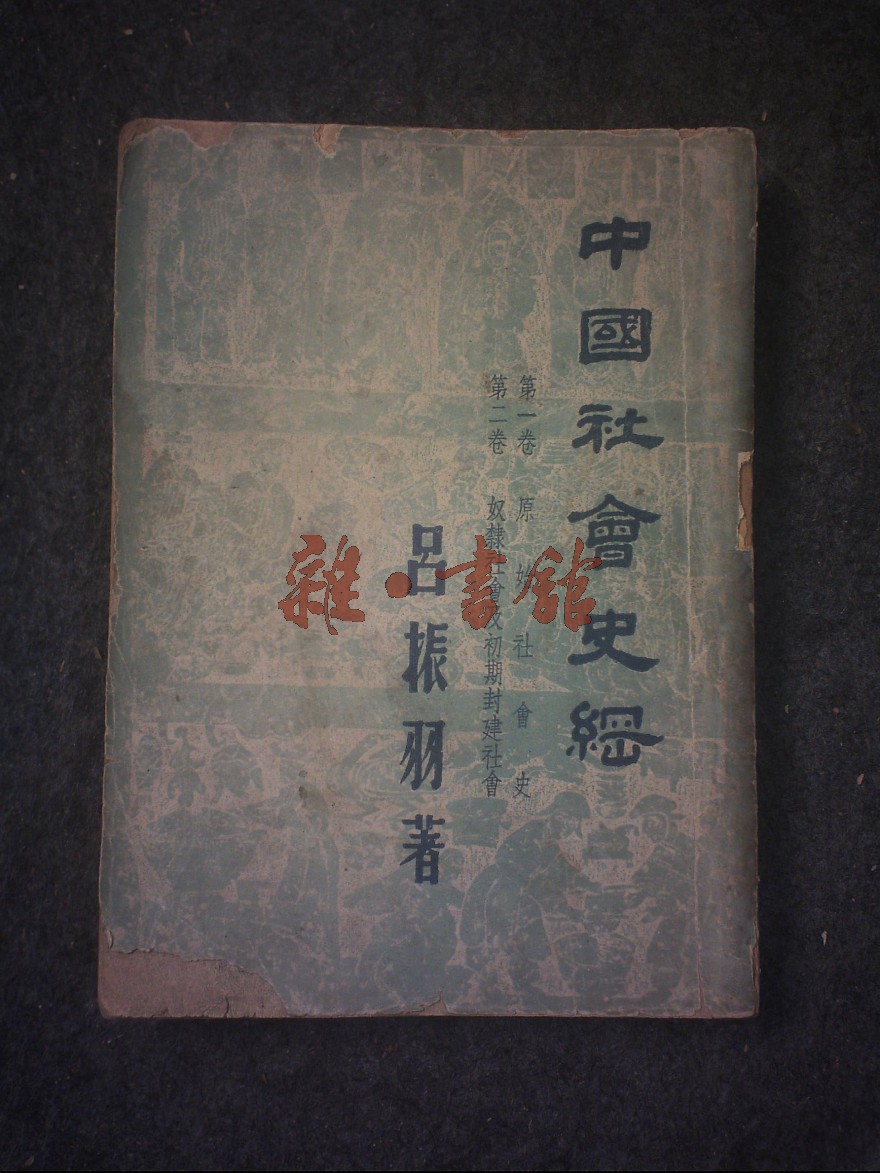 中國社會史綱
第一卷 原始社會史
第二卷 奴隸社會及初期封建社會
呂振羽著
雜·書館